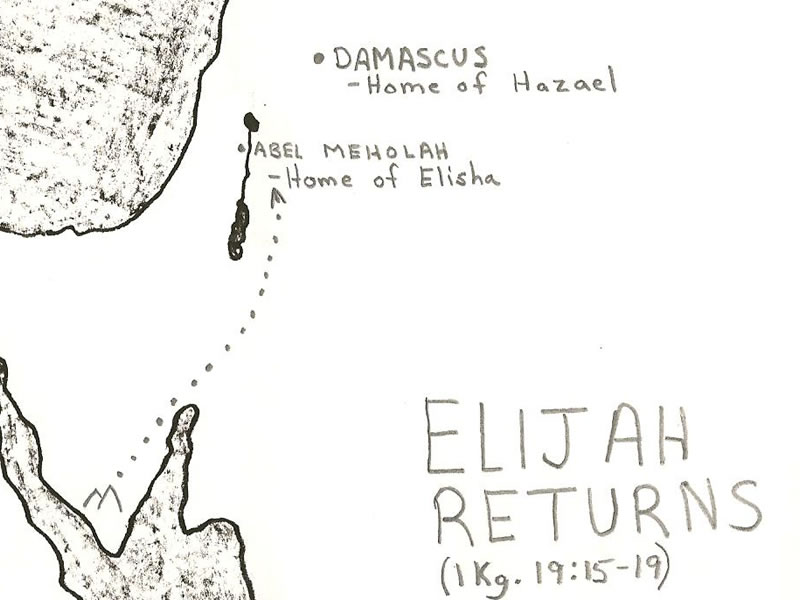 DAMASCUS
-Home of Hazael
ABEL MEHOLAH
-Home of Elisha
ELIJAH
RETURNS
(1 Kg. 19:15-19)